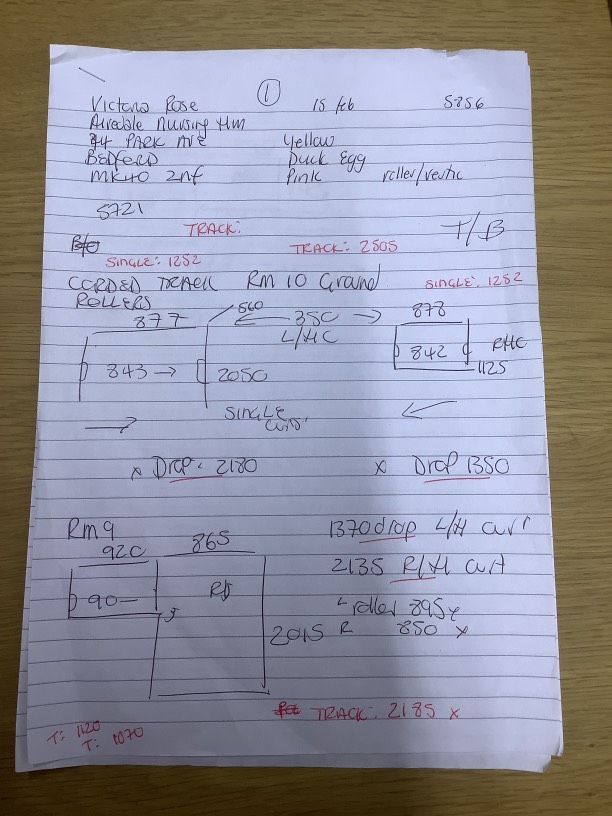 1
15 feb
5256
Victoria Rose
Airedale Nursing Hm
44 PARK AVE
Yellow
BEDFORD
Duck Egg
MK40 2nf
Pink
roller/
5721
TRACK:
T/B
TRACK: 2505
SINGLE: 1252
SINGLE: 1252
Rm 10 Ground
ROLLERS
877
560
350
878
L/HC
843
842
RHC
2050
1125
SINGLE
x Drop: 2180
x Drop 1350
Rm 9
1370 drop L/H
920
865
2135 R/H
90
L roller 895
2015
R 850 x
TRACK: 2185 x
T: 1120
T: 1070